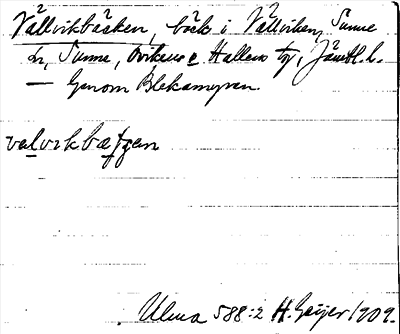 Vällvikbäcken, bäck i Vällviken, Sunne
sn, Sunne, Ovikens o Hallens tg, Jämtl. l.
— Genom Blekamyren.
Ulma 588:2 H. Geijer 1909.